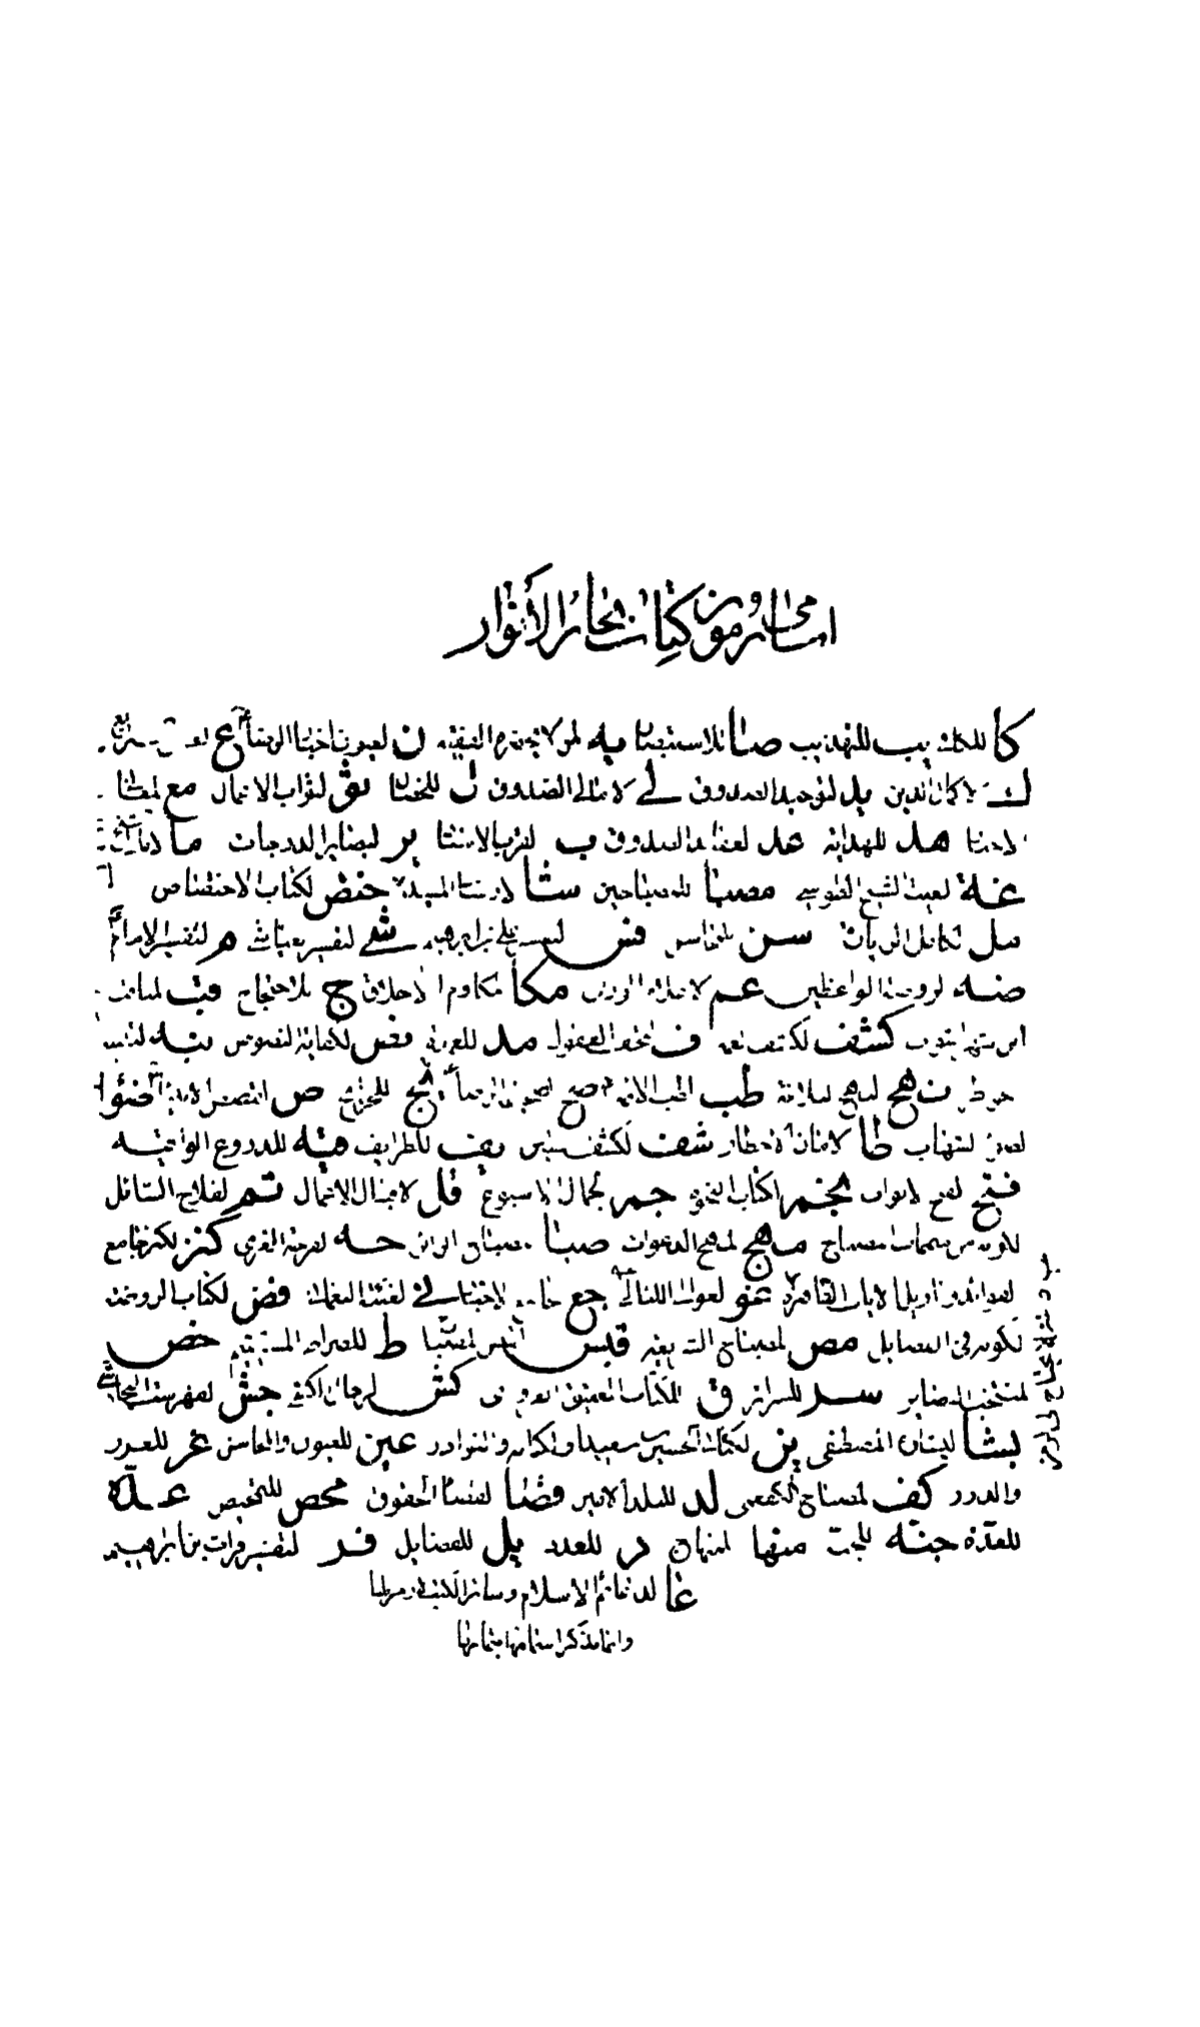 اسامي رموز كتاب بحار الأنوار
كا للكافي يب للتهذيب صا للاستبصار يه لمن لا يحضره الفقيه ن لعيون اخبار الرضا ع لعلل الشرايع
ك لاكمال الدين يد لتوحيد الصدوق لي لامالي الصدوق ل للخصال ثو لثواب الاعمال مع لمعاني
الاخبار هد للهداية عد لعقائد الصدوق ب لقرب الاسناد ير لبصاير الدرجات ما
غط لغيبة الشيخ الطوسي مصبا للمصباحين شا لارشاد المفيد ختص لكتاب الاختصاص
مل لكامل الزيارة سن للمحاسن فس لتفسير علي بن ابرهيم شي لتفسير عياشي م لتفسير الامام
ضه لروضة الواعظين عم لاعلام الورى مكا لمكارم الاخلاق ج للاحتجاج قب لمناقب
ابن شهراشوب كشف لكشف الغمة ف لتحف العقول مد للعمدة نص لكفاية النصوص نبه لتنبيه
خواطر نهج لنهج البلاغة طب لطب الائمة صح لصحيفة الرضا يج للخرايج ص لقصص الانبياء ضوء
لضوء الشهاب طا لامان الاخطار شف لكشف اليقين يف للطرايف قيه للدروع الواقيه
فتح لفتح الابواب نجم لكتاب النجوم جم لجمال الاسبوع قل لاقبال الاعمال تم لفلاح السائل
لكونه من تتمات المصباح مهج لمهج الدعوات صبا لمصباح الزائر حه لفرحة الغري كنز لكنز جامع
الفوائد وتاويل الايات الظاهرة غو لغوالي اللئالي جع لجامع الاخبار ني لغيبة النعماني فض لكتاب الروضة
لكونه في الفضايل مص لمصباح الشريعة قبس لقبس المصباح ط للصراط المستقيم خص
لمنتخب البصاير سر للسرائر ق للكتاب العتيق الغروي كش لرجال الكشي جش لفهرست النجاشي
بشا لبشارة المصطفى ين لكتاب الحسين بن سعيد او لكتابه والنوادر عين للعيون والمحاسن غر للغرر
والدرر كف لمصباح الكفعمي لد للبلد الامين قضا لقضاء الحقوق محص للتمحيص عده
للعدة جنه للجنة منها لمنهاج در للعدد يل للفضايل فر لتفسير فرات بن ابرهيم
عا لدعائم الاسلام وسائر الكتب لا رمز لها
وانما نذكر اسمائها بتمامها